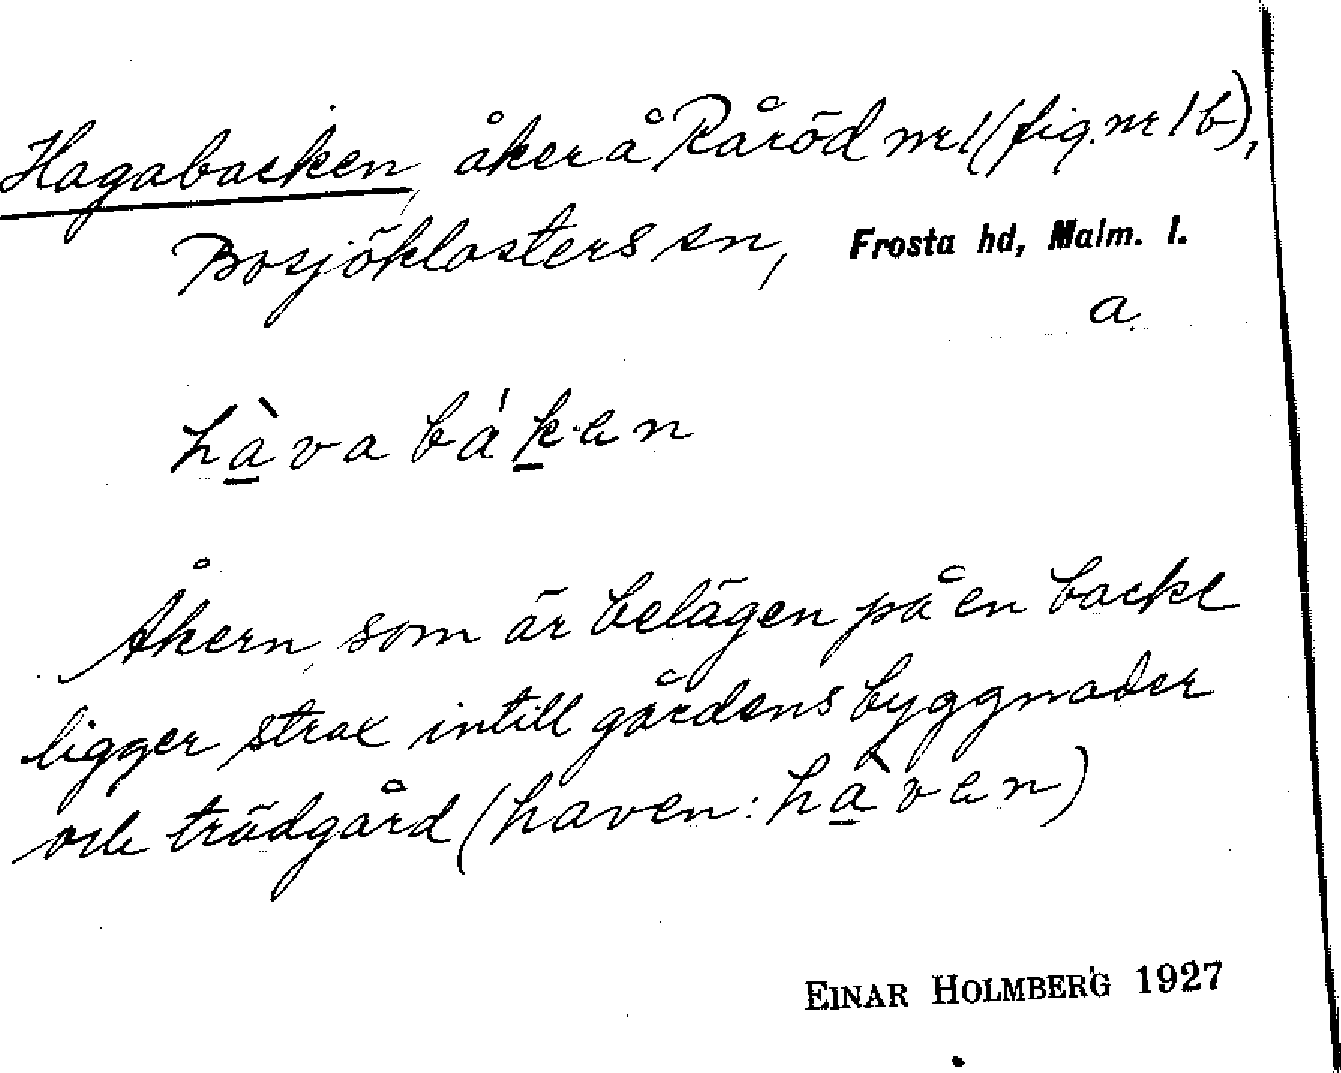 Hagabacken, åker å Råröd nr 1 (fig. nr 1 b),
Bosjöklosters sn, Frosta hd, Malm. l.
a.
hàvabáken
Åkern, som är belägen på en backe
ligger strax intill gårdens byggnader
och trädgård (haven: hàven)
EINAR HOLMBERG 1927